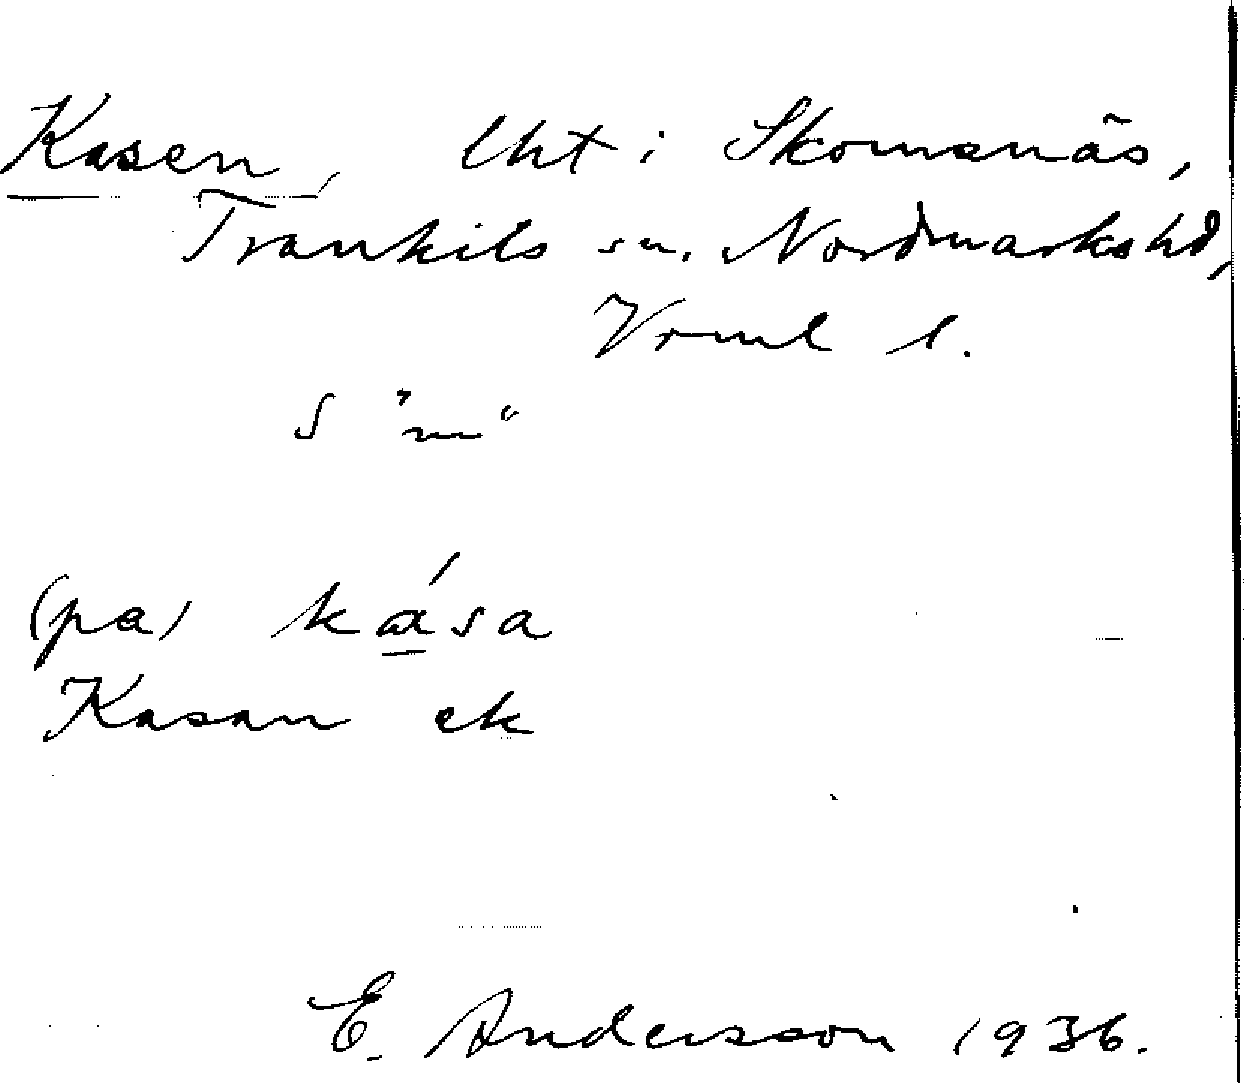 Kasen, lht i Skomsnäs,
Trankils sn. Nordmarks hd,
Vrml l.
S "m"
(pa) kása
Kasan ek
E. Andersson 1936.